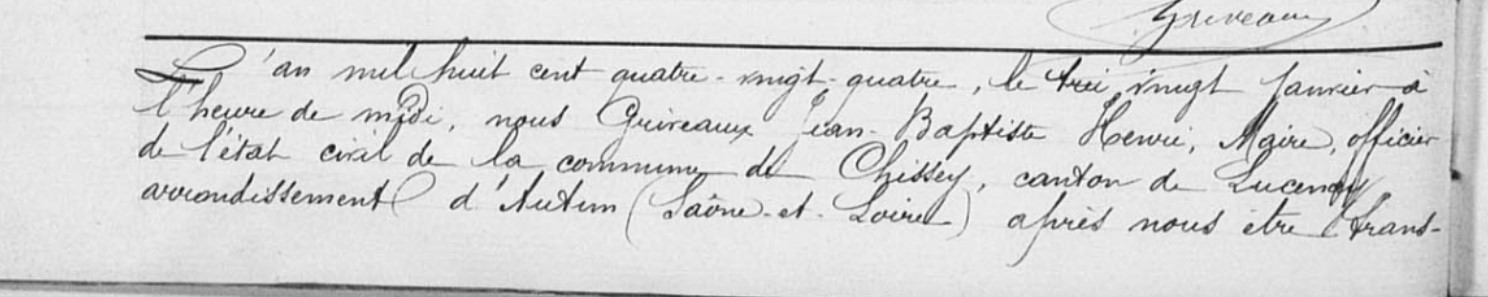 Griveaux
L'an mil huit cent quatre-vingt-quatre, le trei vingt Janvier à
l'heure de midi, nous Griveaux Jean-Baptiste Henri, Maire, officier
de l'état civil de la commune de Chissey, canton de Lucenay
arrondissement d'Autun (Saône-et-Loire) après nous être trans-